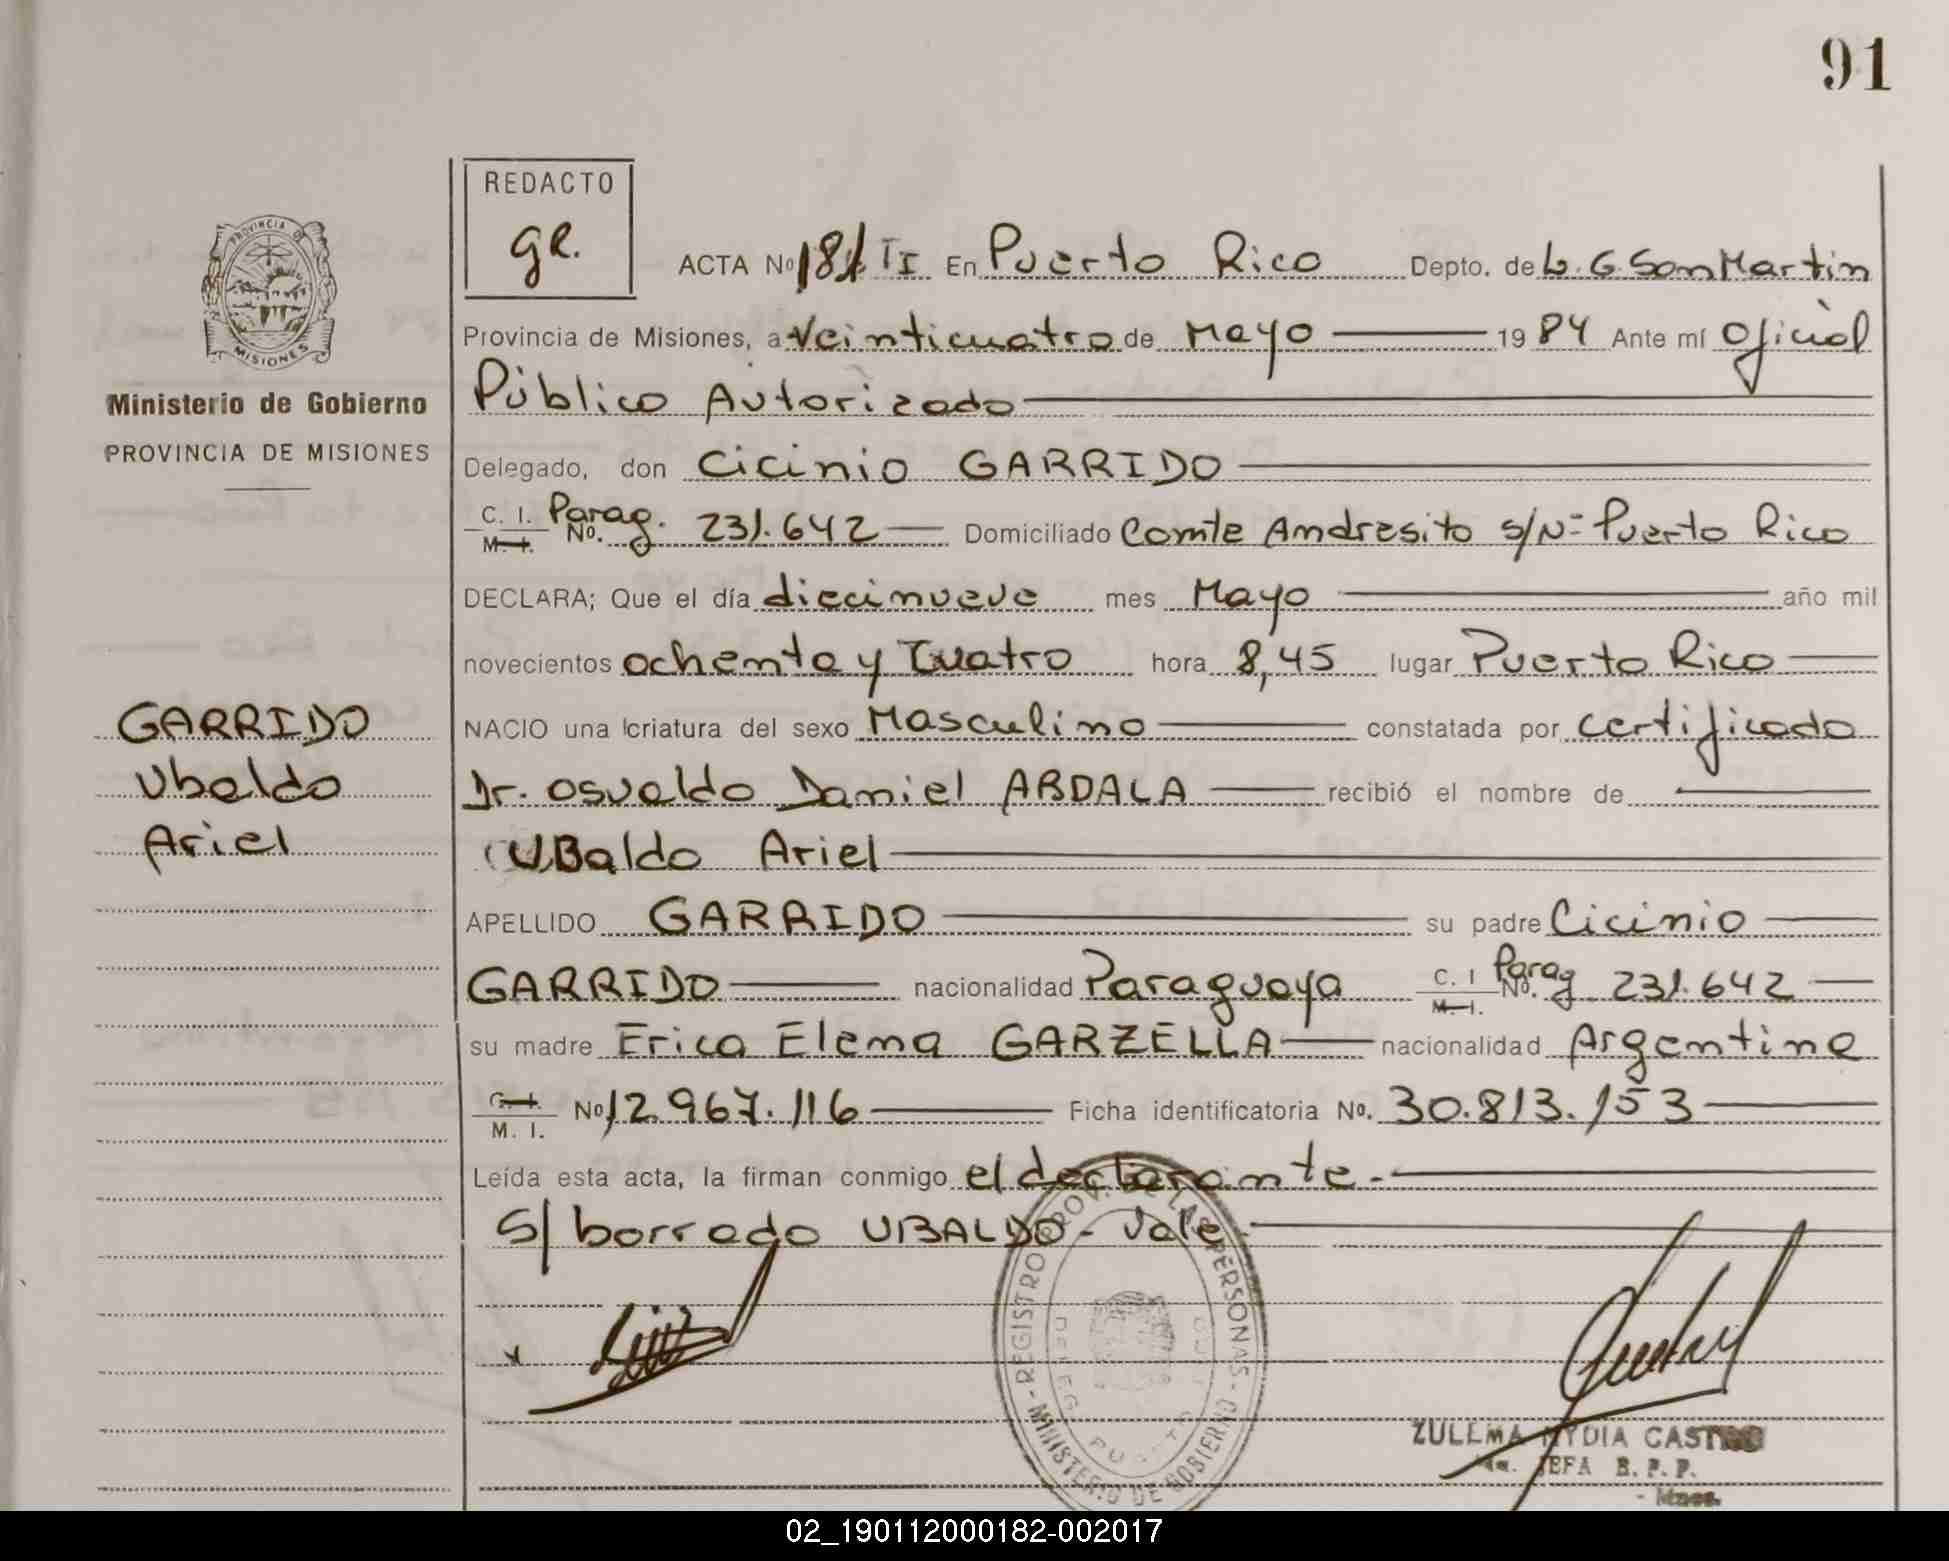 91
REDACTO
ge.
ACTA Nº 181 TI En Puerto Rico Depto. de L. G. San Martin
PROVINCIA DE
MISIONES
Provincia de Misiones, a Veinticuatro de Mayo 1984 Ante mí Oficial
Ministerio de Gobierno
Público Autorizado
PROVINCIA DE MISIONES
Delegado, don Cicinio GARRIDO
C. I. M. I. No. Parag. 231.642 Domiciliado Comte Andresito s/Nº Puerto Rico
DECLARA; Que el día diecinueve mes Mayo año mil
novecientos ochenta y Cuatro hora 8,45 lugar Puerto Rico
GARRIDO
Ubaldo
Ariel
NACIO una criatura del sexo Masculino constatada por certificado
Dr. Osvaldo Daniel ABDALA recibió el nombre de
UBaldo Ariel
APELLIDO GARRIDO su padre Cicinio
GARRIDO nacionalidad Paraguaya C. I. M. I. No. Parag 231.642
su madre Erica Elena GARZELLA nacionalidad Argentina
C. I. M. I. Nº 12.967.116 Ficha identificatoria No. 30.813.153
Leída esta acta, la firman conmigo el declarante.-
S/ borrado UBALDO- Vale
REGISTRO PROV. DE LAS PERSONAS - MINISTERIO DE GOBIERNO -
ZULEMA NYDIA CASTRO
JEFA B. P. P.
- Mnes.
02_190112000182-002017